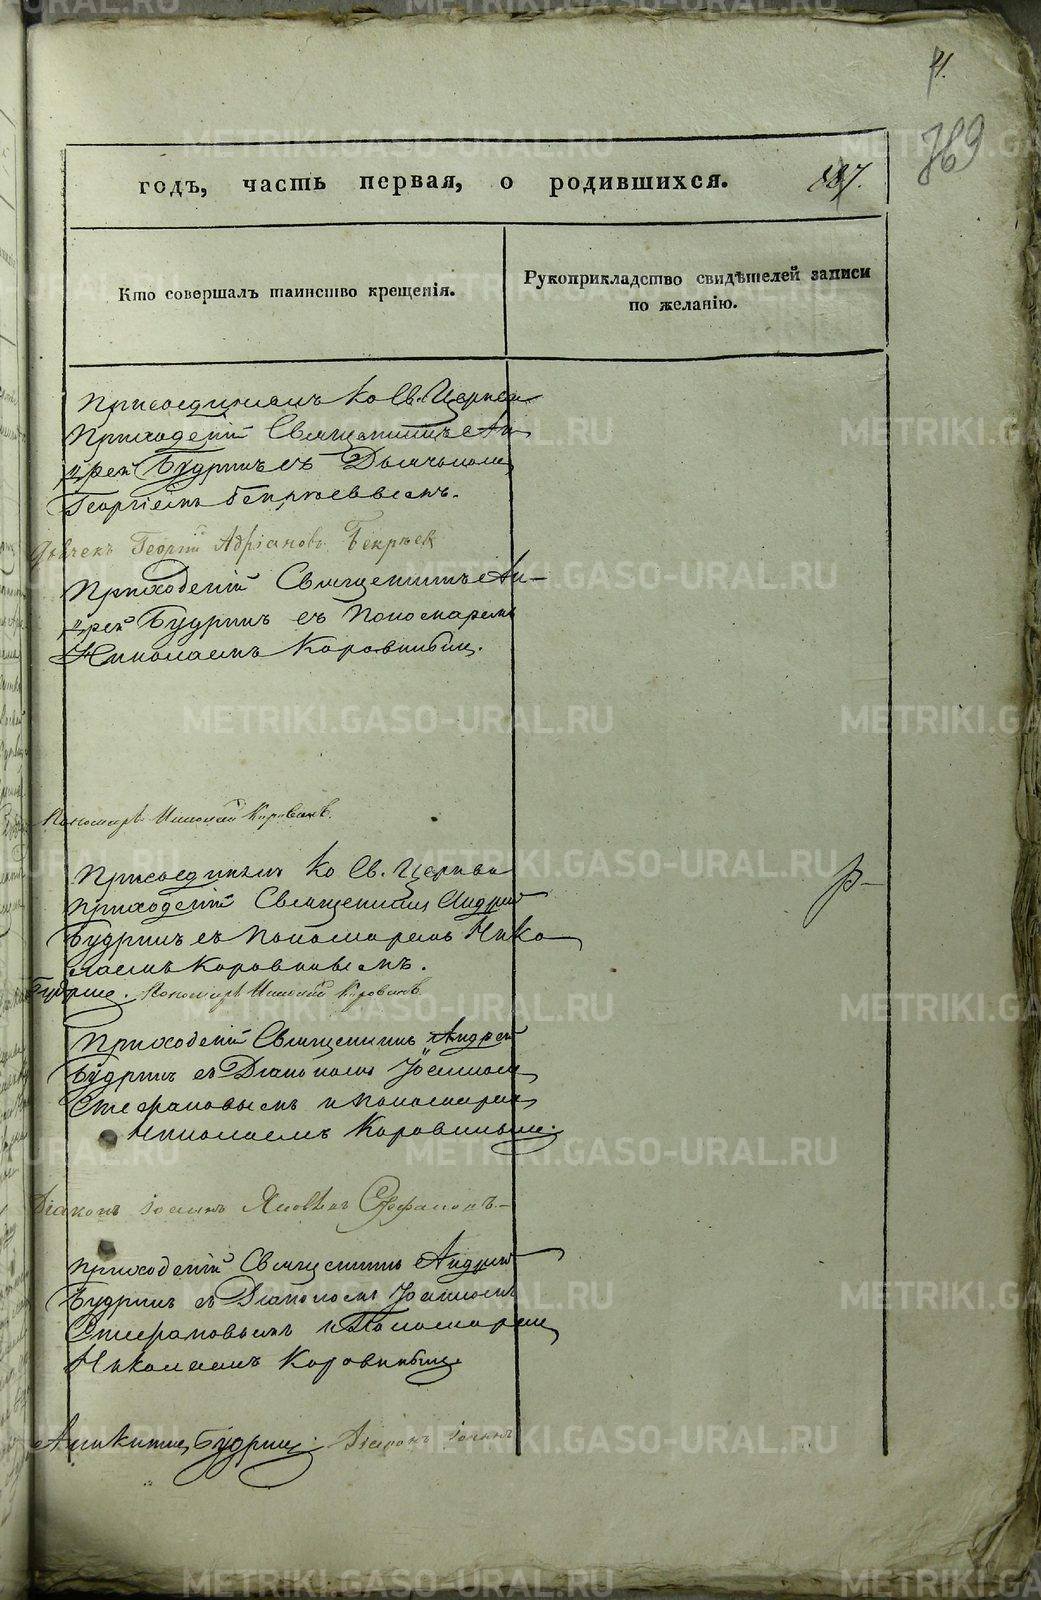 769
годъ, часть первая, о родившихся.
Кто совершалъ таинство крещенія.
Рукоприкладство свидѣтелей записи
по желанію.
Присоединялъ ко Св. Церкви
Приходскій Священникъ Ан
дрей Будринъ съ Дьячкомъ
Георгіемъ
Дьячекъ Георгій Адріановъ
Приходскій Священникъ Ан-
дрей Будринъ съ Пономаремъ
Николаемъ Коровинымъ.
Пономарь Николай Коровинъ.
Присоединялъ ко Св. Церкви
Приходскій Священникъ Андрей
Будринъ съ Пономаремъ Нико
лаемъ Коровинымъ.
Будринъ. Пономарь Николай Коровинъ
Приходскій Священникъ Андрей
Будринъ съ Діакономъ Іоанномъ
Стефановымъ и Пономаремъ
Николаемъ Коровинымъ.
Діаконъ Іоаннъ Стефановъ.
Приходскій Священникъ Андрей
Будринъ съ Діакономъ Іоанномъ
Стефановымъ и Пономаремъ
Николаемъ Коровинымъ
Будринъ. Діаконъ Іоаннъ
METRIKI.GASO-URAL.RU